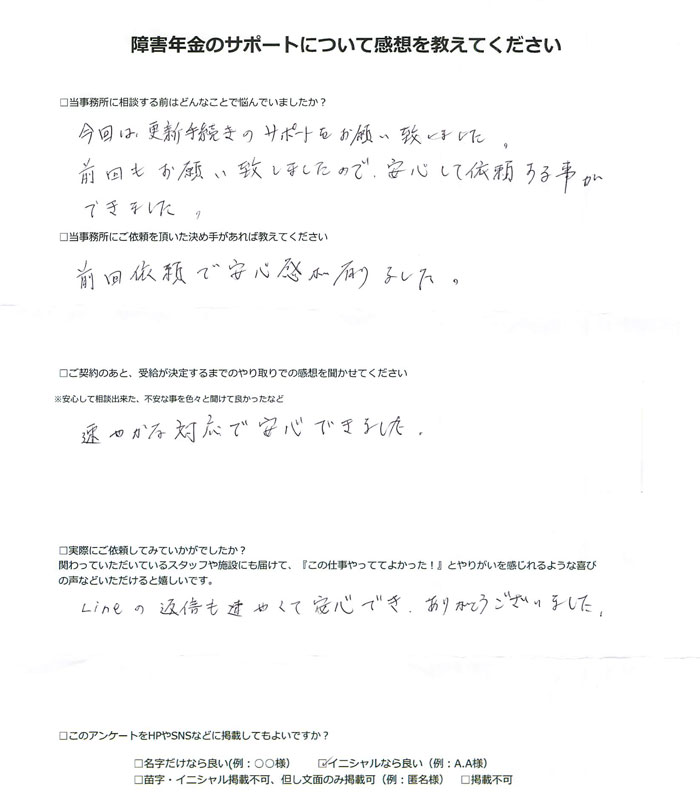 障害年金のサポートについて感想を教えてください
□当事務所に相談する前はどんなことで悩んでいましたか？
今回は更新手続きのサポートをお願い致しました。
前回もお願い致しましたので、安心して依頼する事が
できました。
□当事務所にご依頼を頂いた決め手があれば教えてください
前回依頼で安心感が有りました。
□ご契約のあと、受給が決定するまでのやり取りでの感想を聞かせてください
※安心して相談出来た、不安な事を色々と聞けて良かったなど
速やかな対応で安心できました。
□実際にご依頼してみていかがでしたか？
関わっていただいているスタッフや施設にも届けて、『この仕事やっててよかった！』とやりがいを感じれるような喜び
の声などいただけると嬉しいです。
Lineの返信も速やくて安心でき、ありがとうございました。
□このアンケートをHPやSNSなどに掲載してもよいですか？
□名字だけなら良い(例：○○様）　☑イニシャルなら良い（例：A.A様）
□苗字・イニシャル掲載不可、但し文面のみ掲載可（例：匿名様）　□掲載不可